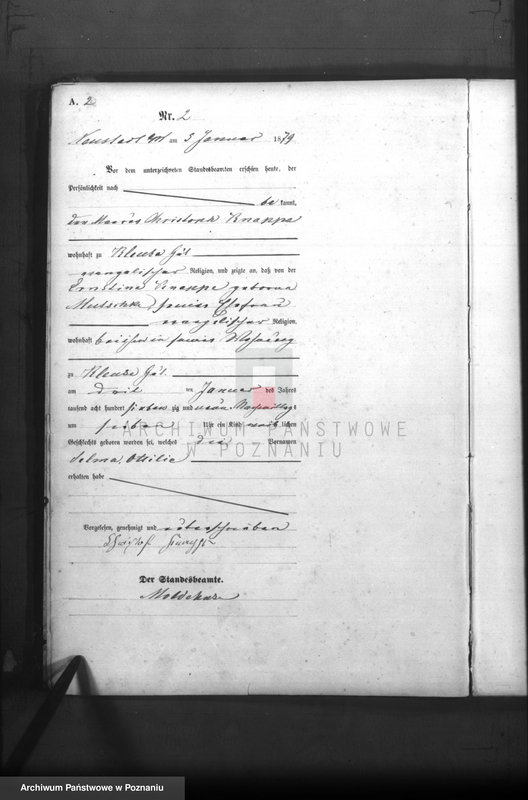 A. 2
Nr. 2
am 3 Januar 1879
Vor dem unterzeichneten Standesbeamten erschien heute, der
Persönlichkeit nach
be kannt,
Christoph Knappe
wohnhaft zu
evangelischer Religion, und zeigte an, daß von der
Ernstine Knappe geborne
seiner Ehefrau
evangelischer Religion,
wohnhaft bei ihm in seiner Wohnung
zu
am drei ten Januar des Jahres
tausend acht hundert sieben zig und neun Nachmittags
um sieben Uhr ein Kind weib lichen
Geschlechts geboren worden sei, welches die Vornamen
Selma Ottilie
erhalten habe
Vorgelesen, genehmigt und unterschrieben
Der Standesbeamte.
ARCHIWUM PAŃSTWOWE
W POZNANIU
Archiwum Państwowe w Poznaniu